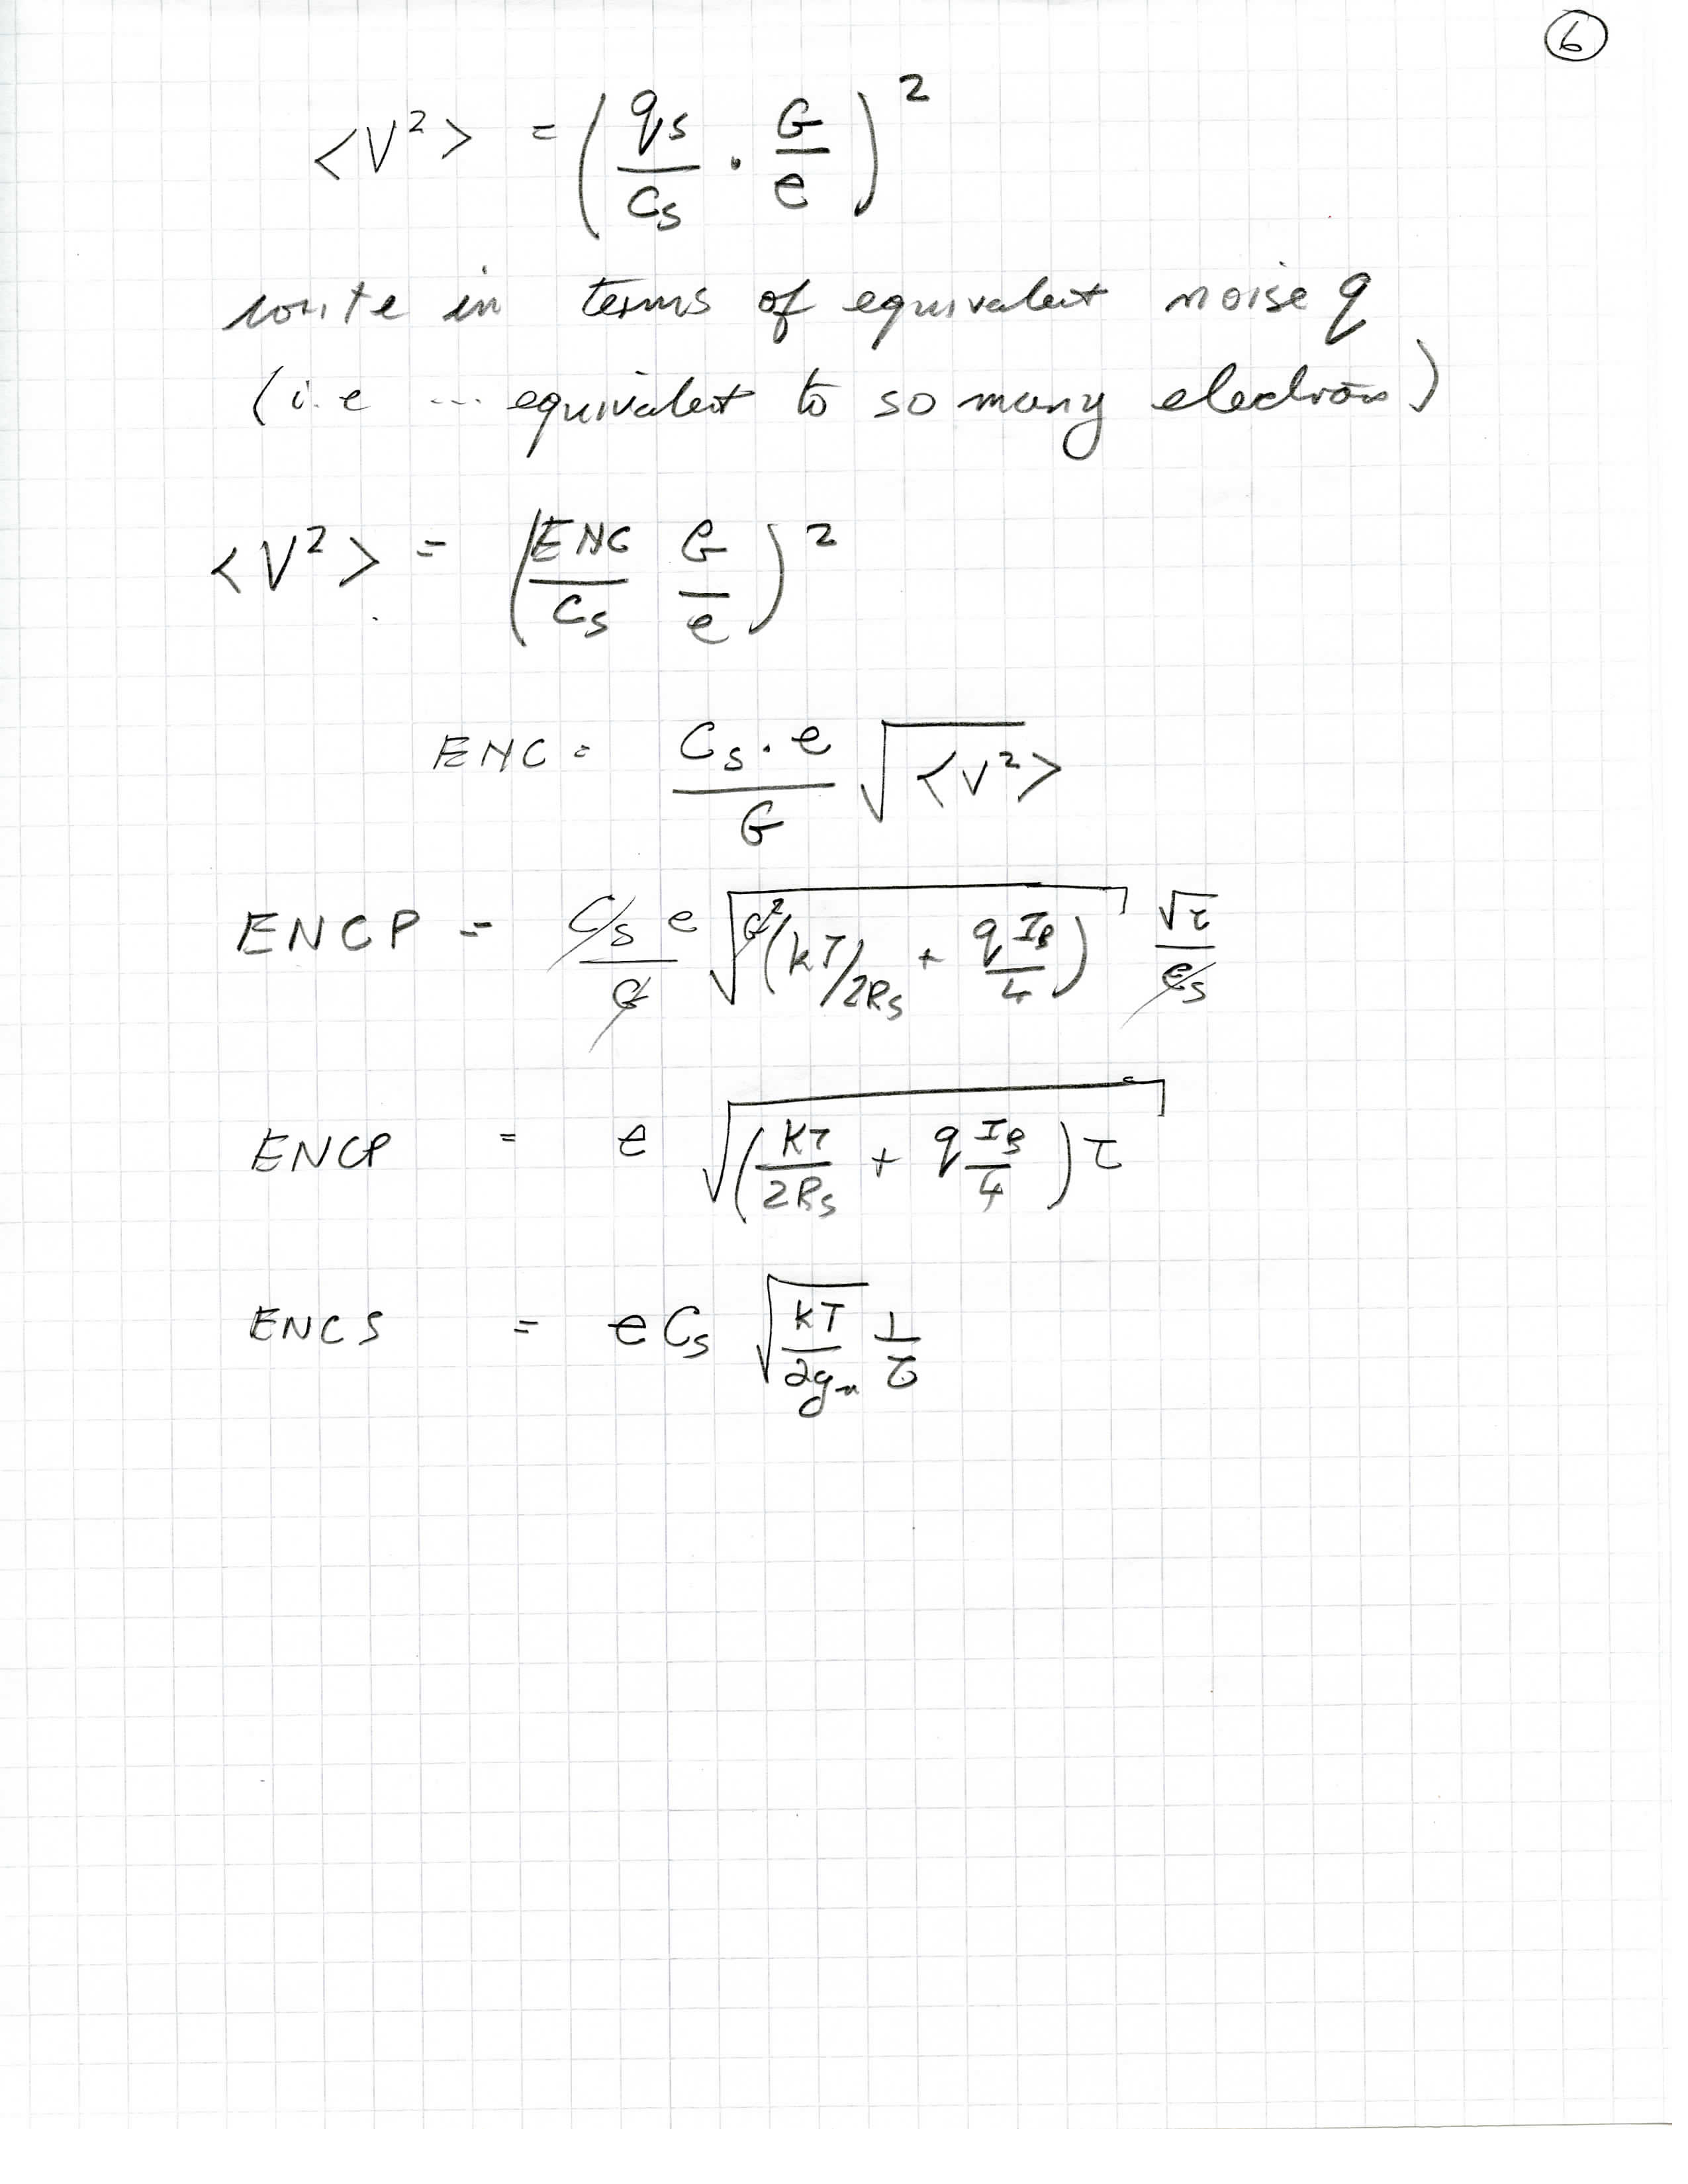 6
<V²> = (qs/Cs · G/e)²
write in terms of equivalent noise q
(i.e ... equivalent to so many electrons)
<V²> = (ENC/Cs G/e)²
ENC = Cs·e/G √<V²>
ENCP = Cs e/G √G²(kT/2Rs + q IB/4) √τ/Cs
ENCP = e √(kT/2Rs + q IB/4)τ
ENCS = e Cs √kT/2gm 1/τ